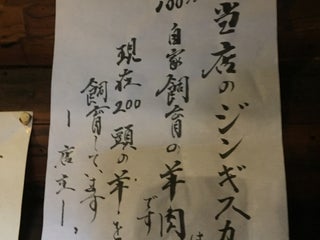 当店のジンギスカ
は
100%
自家飼育の羊肉です
現在200頭の羊を
飼育してます
ー店主ー